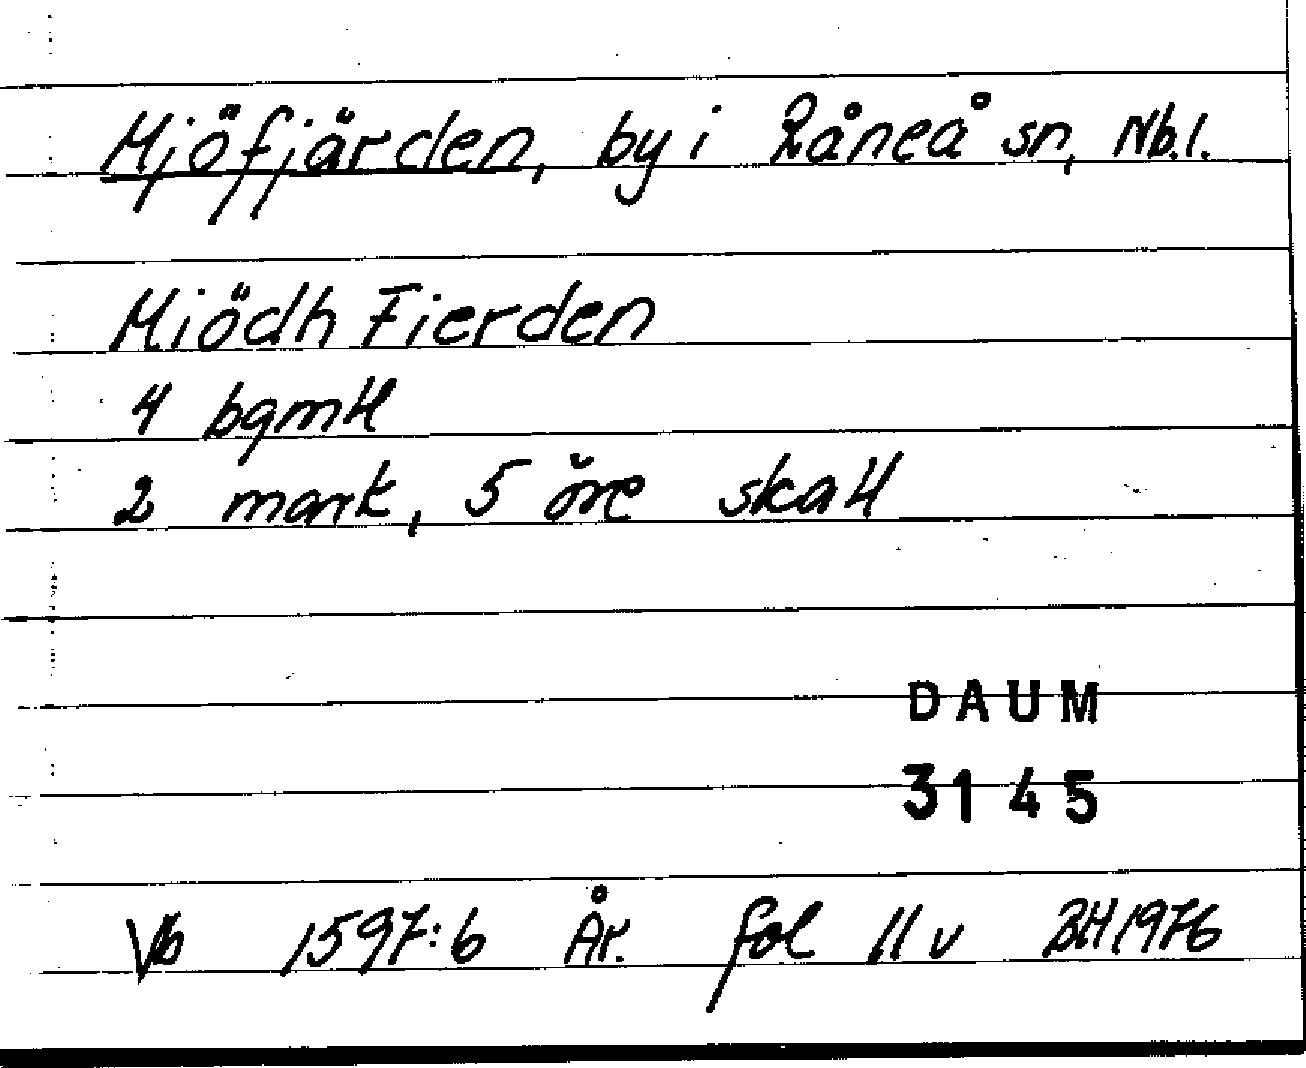 Mjöfjärden, by i Råneå sn, Nb.l.
Miödh Fierden
4 bgmtl
2 mark, 5 öre skatt
DAUM
3145
Vb 1597:6 År. fol 11 v BH 1976